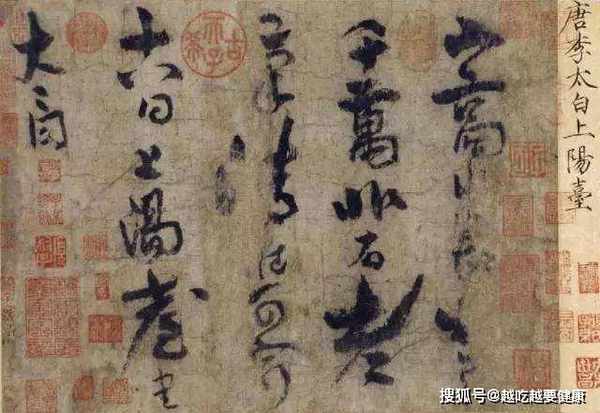 唐李太白上陽臺
山高水長物象
千萬非有老
筆清壯可窮
十八日上陽臺書
太白
古希天子
搜狐号@越吃越要健康